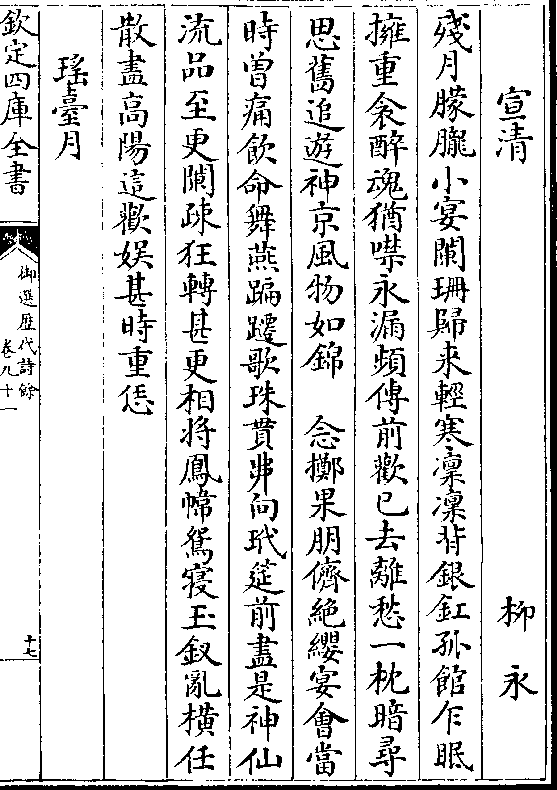 宣清　柳永
殘月朦朧小宴闌珊歸来輕寒凜凜背銀釭孤館乍眠
擁重衾醉魂猶噤永漏頻傳前歡已去離愁一枕暗尋
思舊追遊神京風物如錦　念擲果朋儕絶纓宴會當
時曽痛飲命舞燕蹁躚歌珠貫串向玳筵前盡是神仙
流品至更闌疎狂轉甚更相將鳳幃鴛寢玉釵亂横任
散盡高陽這歡娱甚時重恁
瑤臺月
欽定四庫全書
御選歴代詩餘
卷九十一
十七